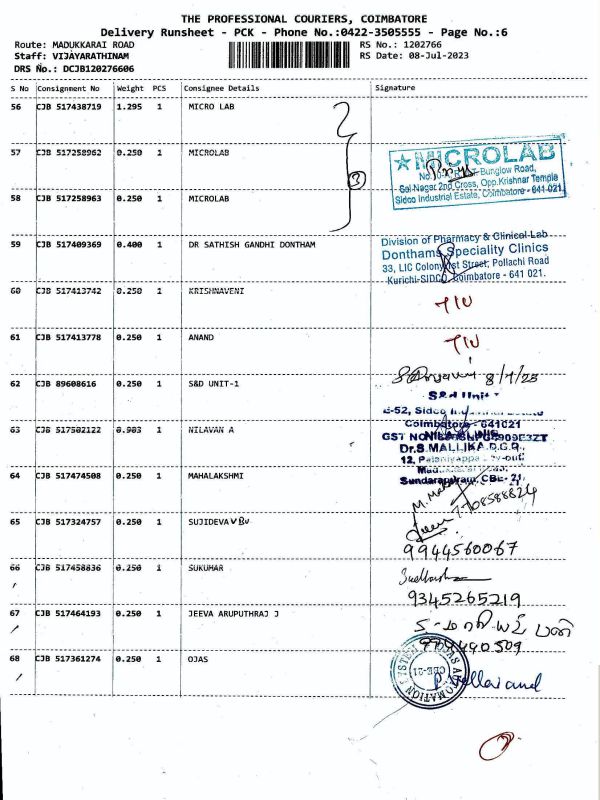 THE PROFESSIONAL COURIERS, COIMBATORE
Delivery Runsheet - PCK - Phone No.:0422-3505555 - Page No.:6
Route: MADUKKARAI ROAD RS No.: 1202766
Staff: VIJAYARATHINAM RS Date: 08-Jul-2023
DRS No.: DCJB120276606
S No Consignment No Weight PCS Consignee Details Signature
56 CJB 517438719 1.295 1 MICRO LAB
57 CJB 517258962 0.250 1 MICROLAB
MICROLAB
Bunglow Road,
Sai Nagar 2nd Cross, Opp.Krishnar Temple
Sidco Industrial Estate, Coimbatore - 641 021
3
58 CJB 517258963 0.250 1 MICROLAB
59 CJB 517409369 0.400 1 DR SATHISH GANDHI DONTHAM
Division of Pharmacy & Clinical Lab
Donthams Speciality Clinics
33, LIC Colony Ist Street, Pollachi Road
Kurichi-SIDCO, Coimbatore - 641 021.
60 CJB 517413742 0.250 1 KRISHNAVENI
61 CJB 517413778 0.250 1 ANAND
62 CJB 89608616 0.250 1 S&D UNIT-1
8/7/23
S&d Unit
E-52, Sidco
Coimbatore - 641021
63 CJB 517502122 0.903 1 NILAVAN A
GST NO
Dr.S.MALLIKA.D.G.O.
12,
Sundarapuram, CBE- 21
64 CJB 517474508 0.250 1 MAHALAKSHMI
7708588824
65 CJB 517324757 0.250 1 SUJIDEVA
9944560067
66 CJB 517458836 0.250 1 SUKUMAR
9345265219
67 CJB 517464193 0.250 1 JEEVA ARUPUTHRAJ J
68 CJB 517361274 0.250 1 OJAS
OJAS AUTOMATION SYSTEM
CBE-21